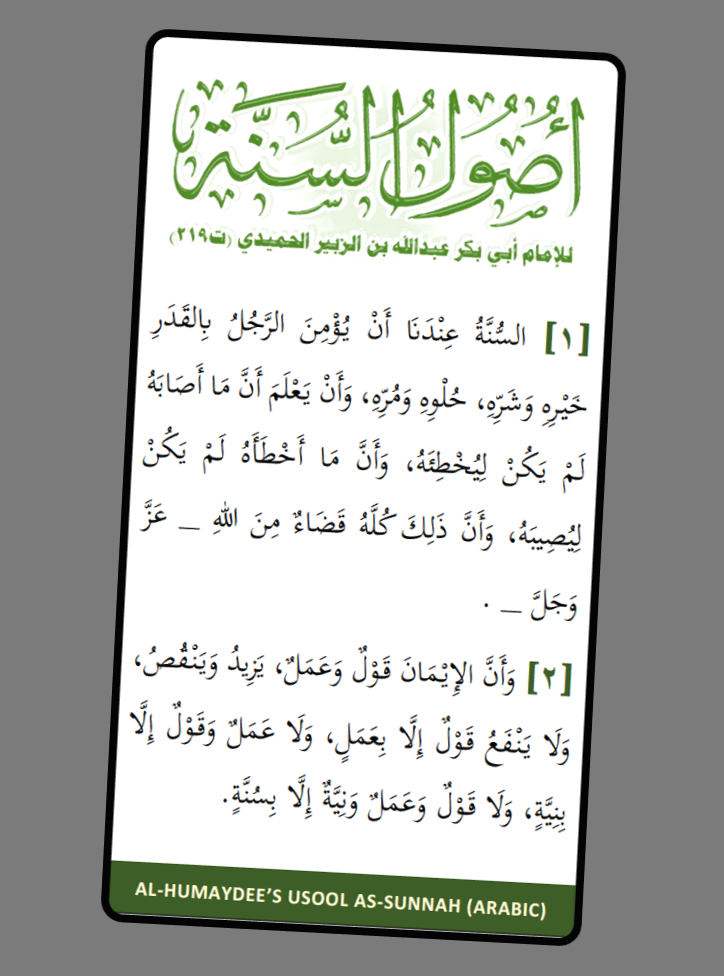 أصول السنة
للإمام أبي بكر عبدالله بن الزبير الحميدي (ت٢١٩)
[١] السُّنَّةُ عِنْدَنَا أَنْ يُؤْمِنَ الرَّجُلُ بِالقَدَرِ
خَيْرِهِ وَشَرِّهِ، حُلْوِهِ وَمُرِّهِ، وَأَنْ يَعْلَمَ أَنَّ مَا أَصَابَهُ
لَمْ يَكُنْ لِيُخْطِئَهُ، وَأَنَّ مَا أَخْطَأَهُ لَمْ يَكُنْ
لِيُصِيبَهُ، وَأَنَّ ذَلِكَ كُلَّهُ قَضَاءٌ مِنَ اللهِ _ عَزَّ
وَجَلَّ _ .
[٢] وَأَنَّ الإِيْمَانَ قَوْلٌ وَعَمَلٌ، يَزِيدُ وَيَنْقُصُ،
وَلَا يَنْفَعُ قَوْلٌ إِلَّا بِعَمَلٍ، وَلَا عَمَلٌ وَقَوْلٌ إِلَّا
بِنِيَّةٍ، وَلَا قَوْلٌ وَعَمَلٌ وَنِيَّةٌ إِلَّا بِسُنَّةٍ.
AL-HUMAYDEE'S USOOL AS-SUNNAH (ARABIC)